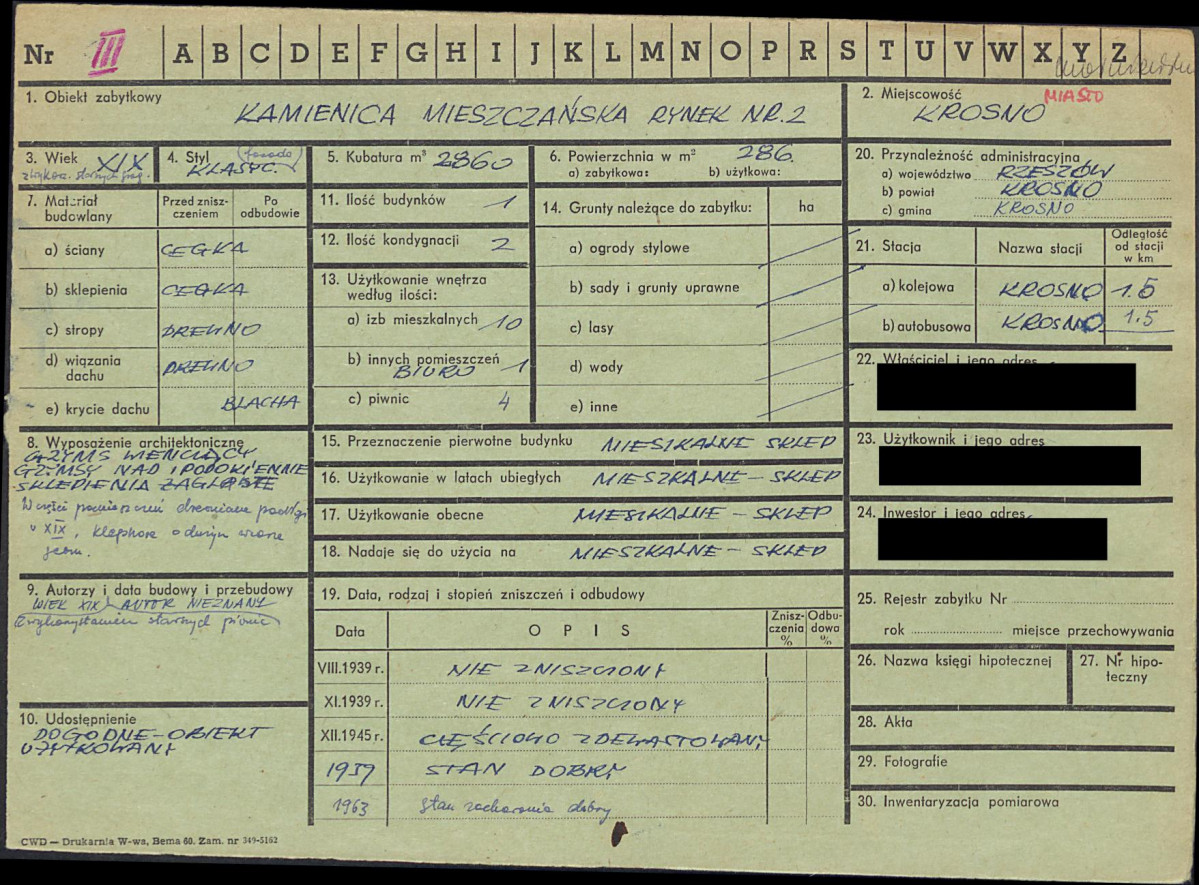 Nr III A B C D E F G H I J K L M N O P R S T U V W X Y Z
1. Obiekt zabytkowy
KAMIENICA MIESZCZAŃSKA RYNEK NR. 2
2. Miejscowość MIASTO
KROSNO
3. Wiek XIX
4. Styl (fasada)
KLASYC.
5. Kubatura m³ 2860
6. Powierzchnia w m² 286.
a) zabytkowa: b) użytkowa:
7. Materiał budowlany
Przed zniszczeniem
Po odbudowie
a) ściany CEGŁA
b) sklepienia CEGŁA
c) stropy DREWNO
d) wiązania dachu DREWNO
e) krycie dachu BLACHA
8. Wyposażenie architektoniczne
GZYMS WIEŃCZĄCY
GZYMSY NAD I PODOKIENNE
SKLEPIENIA ŻAGLASTE
W części pomieszczeń drewniane podłogi
XIX,
9. Autorzy i data budowy i przebudowy
WIEK XIX AUTOR NIEZNANY
z wykorzystaniem starszych piwnic
10. Udostępnienie
DOGODNE - OBIEKT
UŻYTKOWANY
11. Ilość budynków 1
12. Ilość kondygnacji 2
13. Użytkowanie wnętrza
według ilości:
a) izb mieszkalnych 10
b) innych pomieszczeń
BIURO 1
c) piwnic 4
14. Grunty należące do zabytku: ha
a) ogrody stylowe
b) sady i grunty uprawne
c) lasy
d) wody
e) inne
15. Przeznaczenie pierwotne budynku MIESZKALNE SKLEP
16. Użytkowanie w latach ubiegłych MIESZKALNE - SKLEP
17. Użytkowanie obecne MIESZKALNE - SKLEP
18. Nadaje się do użycia na MIESZKALNE - SKLEP
19. Data, rodzaj i stopień zniszczeń i odbudowy
Data OPIS Zniszczenia % Odbudowa %
VIII.1939 r. NIE ZNISZCZONY
XI.1939 r. NIE ZNISZCZONY
XII.1945 r. CZĘŚCIOWO ZDEWASTOWANY
1959 STAN DOBRY
1963 Stan zachowania dobry
20. Przynależność administracyjna
a) województwo RZESZÓW
b) powiat KROSNO
c) gmina KROSNO
21. Stacja Nazwa stacji Odległość od stacji w km
a) kolejowa KROSNO 1.5
b) autobusowa KROSNO 1.5
22. Właściciel i jego adres
23. Użytkownik i jego adres
24. Inwestor i jego adres
25. Rejestr zabytku Nr
rok miejsce przechowywania
26. Nazwa księgi hipotecznej
27. Nr hipoteczny
28. Akta
29. Fotografie
30. Inwentaryzacja pomiarowa
CWD — Drukarnia W-wa, Bema 60. Zam. nr 349-5162